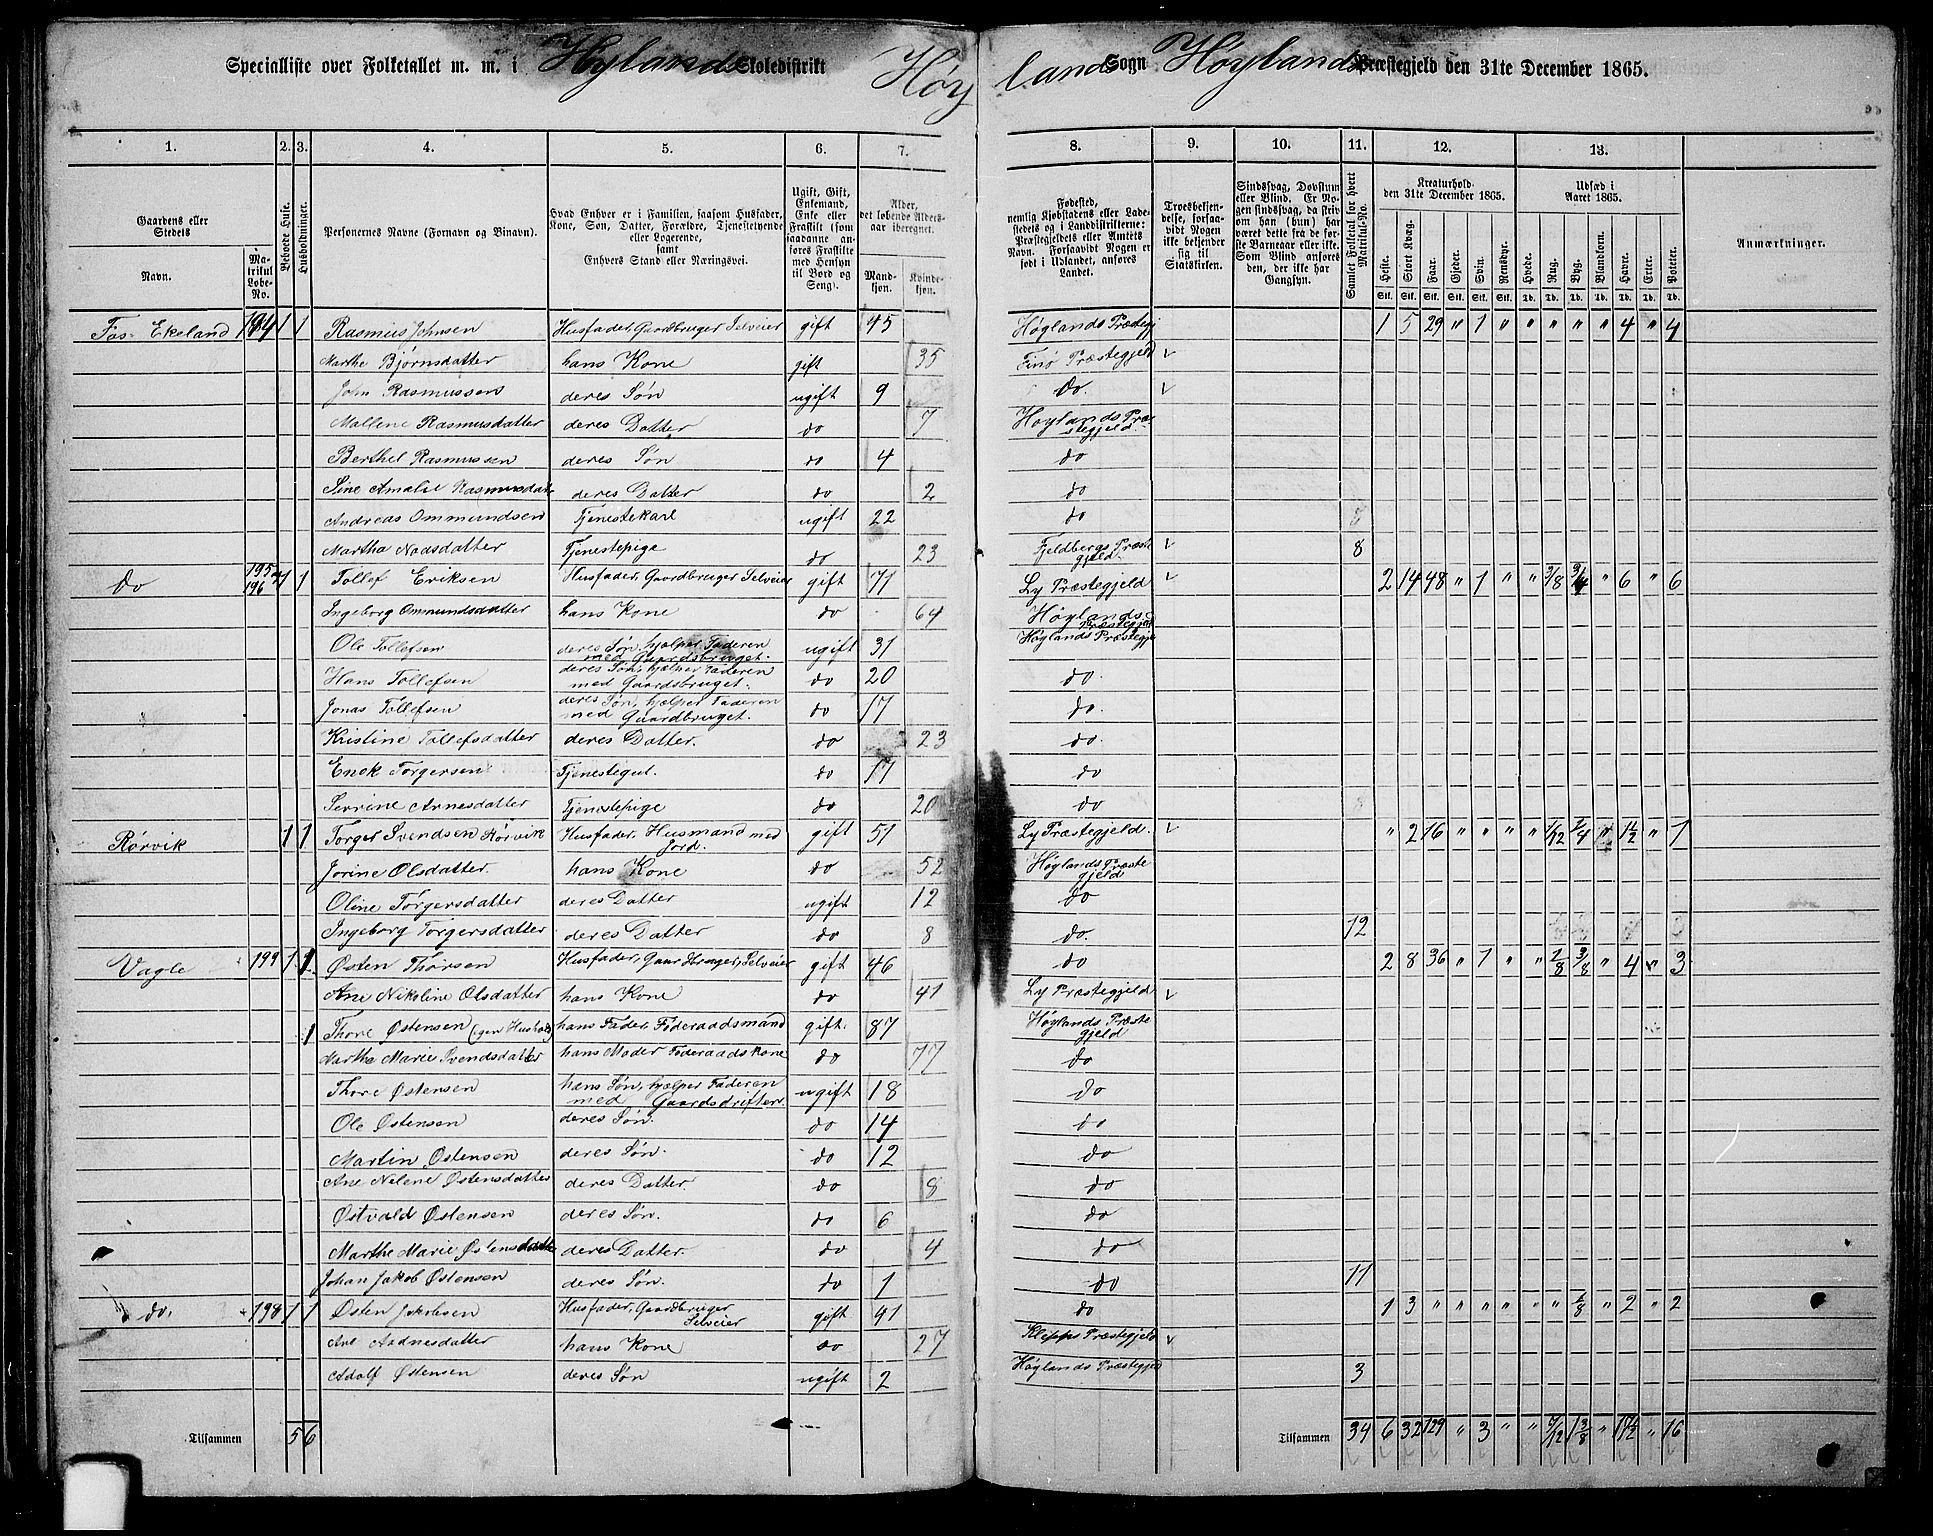 Specialliste over Folketallet m. m. i Høylands Skoledistrikt Høylands Sogn Høylands Præstegjeld den 31te December 1865.
1. 2. 3. 4. 5. 6. 7. 8. 9. 10. 11. 12. 13.
Gaardens eller Stedets Navn.
Matrikul Løbe-No.
Beboede Huse.
Husholdninger.
Personernes Navne (Fornavn og Binavn).
Hvad Enhver er i Familien, saasom Husfader, Kone, Søn, Datter, Forældre, Tjenestetyende eller Logerende, samt Enhvers Stand eller Næringsvei.
Ugift, Gift, Enkemand, Enke eller Fraskilt (som saadanne anføres Fraskilte med Hensyn til Bord og Seng).
Alder, det løbende Aldersaar iberegnet.
Mandkjøn.
Kvindekjøn.
Fødested, nemlig Kjøbstadens eller Ladestedets og i Landdistrikterne: Præstegjeldets eller Amtets Navn. Forsaavidt Nogen er født i Udlandet, anføres Landet.
Troesbekjendelse, forsaavidt Nogen ikke bekjender sig til Statskirken.
Sindssvag, Døvstum eller Blind. Er Nogen sindssvag, da skrives om han (hun) har været dette fra de første Barneaar eller ikke. Som Blind anføres den, der ikke har Gangsyn.
Samlet Folketal for hvert Matrikul-No.
Kreaturhold den 31te December 1865.
Heste. Stort Kvæg. Faar. Gjeder. Svin. Rensdyr.
Udsæd i Aaret 1865.
Hvede. Rug. Byg. Blandkorn. Havre. Erter. Poteter.
Stk. Stk. Stk. Stk. Stk. Stk. Td. Td. Td. Td. Td. Td. Td.
Anmærkninger.
Fos- Ekeland 194 1 1 Rasmus Johnsen Husfader, Gaardbruger Selveier gift 45 Høylands Præstegj 1 5 29 " 1 " " " " " 4 " 4
Marthe Bjørnsdatter hans Kone gift 35 Finø Præstegjeld
John Rasmussen deres Søn ugift 9 Do.
Mallene Rasmusdatter deres Datter do 7 Høylands Præstegjeld.
Berthel Rasmussen deres Søn do 4 do
Sine Amalie Rasmusdatte deres Datter do 2 do
Andreas Ommundsen Tjenestekarl ugift 22 do
Martha Naadsdatter Tjenestepige do 23 Fjeldbergs Præstegjeld. 8
do 195 196 1 1 Tollef Eriksen Husfader, Gaardbruger Selveier gift 71 Ly Præstegjeld 2 14 48 " 1 " " 3/8 3/4 " 6 " 6
Ingeborg Ommundsdatter hans Kone do 64 Høylands Præstegjeld
Ole Tollefsen deres Søn, hjælper Faderen med Gaardsbruget. ugift 31 Høylands Præstegje
Hans Tollefsen deres Søn, hjælper Faderen med Gaardsbruget. do 20 do.
Jonas Tollefsen deres Søn, hjælper Faderen med Gaardbruget. do 17 do.
Kristine Tollefsdatter deres Datter. do 23 do.
Enok Torgersen Tjenestegut. do 17 do
Serine Arnesdatter Tjenestepige do 20 do
Rørvik 1 1 Torger Svendsen Rørvik Husfader, Husmand med Jord. gift 51 Ly Præstegjeld. " 2 16 " " " " 1/12 1/4 " 1½ " 1
Jorine Olsdatter. hans Kone do 52 Høylands Præstegjeld
Oline Torgersdatter deres Datter ugift 12 do
Ingeborg Torgersdatter deres Datter do 8 do. 12
Vagle 199 1 1 Østen Thorsen Husfader, Gaardbruger, Selveier gift 46 do 2 8 36 " 1 " " 1/8 3/8 " 4 " 3
Ane Nikoline Olsdatter hans Kone do 41 Ly Præstegjeld
1 Thore Østensen (egen Hushold) hans Fader, Føderaadsmand gift. 87 Høylands Præstegjeld
Martha Marie Svendsdatter hans Moder Føderaadskone do 77 do
Thore Østensen hans Søn, hjælper Faderen med Gaardsdriften. ugift 18 do
Ole Østensen deres Søn. do 14 do
Martin Østensen deres Søn. do 12 do
Ane Nelene Østensdatter deres Datter. do 8 do
Østvald Østensen deres Søn. do 6 do
Marthe Marie Østensdatte deres Datter. do 4 do
Johan Jakob Østensen deres Søn. do 1 do 11
do. 198 1 1 Østen Jakobsen Husfader, Gaardbruger Selveier gift 41 do 1 3 " " " " " " 1/8 " 2 " 2
Ane Aadnesdatter hans Kone do 27 Klepps Præstegjeld
Adolf Østensen deres Søn ugift 2 Høylands Præstegjel 3
Tilsammen 5 6 Tilsammen 34 6 32 129 " 3 " " 7/12 1 3/8 " 17½ " 16